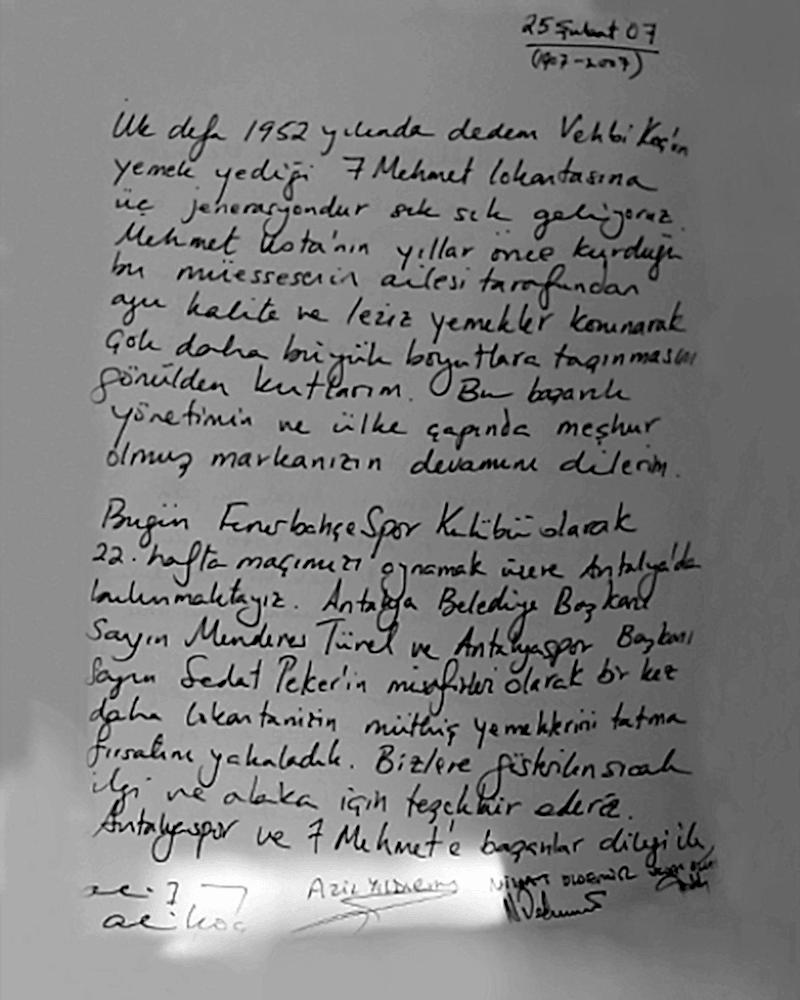 25 Şubat 07
(1907-2007)
İlk defa 1952 yılında dedem Vehbi Koç'un
yemek yediği 7 Mehmet lokantasına
üç jenerasyondur sık sık geliyoruz.
Mehmet Usta'nın yıllar önce kurduğu
bu müessesenin ailesi tarafından
aynı kalite ve leziz yemekler korunarak
çok daha büyük boyutlara taşınmasını
gönülden kutlarım. Bu başarılı
yönetimin ve ülke çapında meşhur
olmuş markanızın devamını dilerim.
Bugün Fenerbahçe Spor Kulübü olarak
22. hafta maçımızı oynamak üzere Antalya'da
bulunmaktayız. Antalya Belediye Başkanı
Sayın Menderes Türel ve Antalyaspor Başkanı
Sayın Sedat Peker'in misafirleri olarak bir kez
daha lokantanızın müthiş yemeklerini tatma
fırsatını yakaladık. Bizlere gösterilen sıcak
ilgi ve alaka için teşekkür ederiz.
Antalyaspor ve 7 Mehmet'e başarılar dileği ile,
AZİZ YILDIRIM NİHAT ÖZDEMİR
Ali Koç